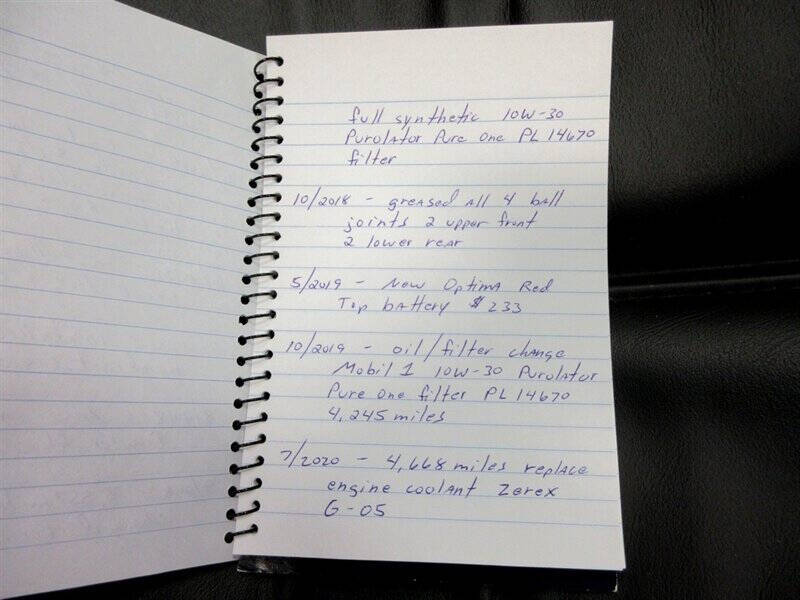 full synthetic 10W-30
Purolator Pure One PL 14670
filter
10/2018 - greased all 4 ball
joints 2 upper front
2 lower rear
5/2019 - New Optima Red
Top battery $233
10/2019 - oil/filter change
Mobil 1 10W-30 Purolator
Pure One filter PL 14670
4,245 miles
7/2020 - 4,668 miles replace
engine coolant Zerex
G-05